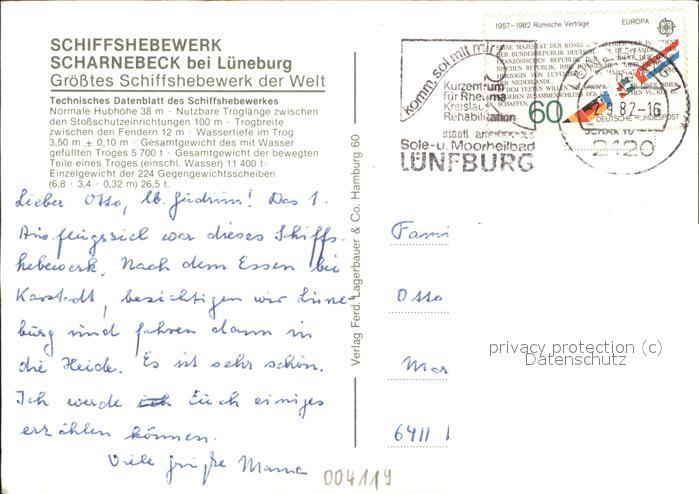 SCHIFFSHEBEWERK
SCHARNEBECK bei Lüneburg
Größtes Schiffshebewerk der Welt
Technisches Datenblatt des Schiffshebewerkes
Normale Hubhöhe 38 m · Nutzbare Troglänge zwischen
den Stoßschutzeinrichtungen 100 m · Trogbreite
zwischen den Fendern 12 m · Wassertiefe im Trog
3,50 m ± 0,10 m · Gesamtgewicht des mit Wasser
gefüllten Troges 5 700 t · Gesamtgewicht der bewegten
Teile eines Troges (einschl. Wasser) 11 400 t ·
Einzelgewicht der 224 Gegengewichtsscheiben
(6,8 · 3,4 · 0,32 m) 26,5 t.
Lieber Otto, lb. Gudrun! Das 1.
Ausflugsziel war dieses Schiffs-
hebewerk. Nach dem Essen bei
Karstadt, besichtigen wir Lüne-
burg und fahren dann in
die Heide. Es ist sehr schön.
Ich werde Euch einiges
erzählen können.
Viele Grüße Mama
004119
Verlag Ferd. Lagerbauer & Co. Hamburg 60
komm, sol mit mir
Kurzentrum
für Rheuma
Kreisla
Rehabilitation
staatl.
Sole- u. Moorheilbad
LÜNEBURG
1957-1982 Römische Verträge
EUROPA
60
DEUTSCHE BUNDESPOST
9.82-16
2120
Fami
Otto
Mar
6411
privacy protection (c)
Datenschutz